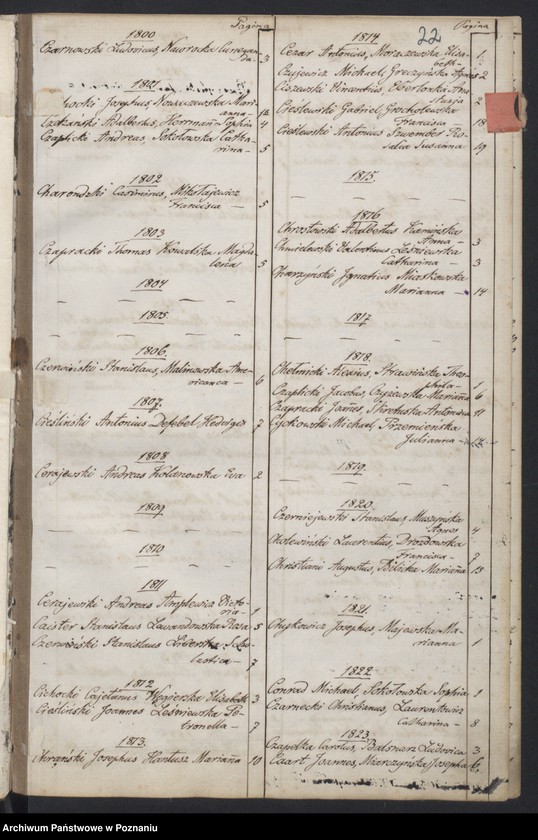 Pagina
1800
Czarnowski Ludovicus, Nawrocka Cunegun-
da- 3
1801
Josephus, Mari-
anna- 12
Adalbertus, Herrman Sophia 4
Czaplicki Andreas, Sokołowska Catha-
rina- 5
1802
Casimirus, Mikołajewicz
Francisca - 5
1803
Czapracki Thomas Kowalska Magda-
lena 5
1804
1805
1806
Czerwiński Stanislaus, Malinowska Ame-
ricanca - 6
1807
Cieśliński Antonius Hedvigis 7
1808
Cerajewski Andreas Kolanowska Eva 2
1809
1810
1811
Cerajewski Andreas Victo-
ria- 1
Stanislaus Lewandowska Rosa 5
Czerwiński Stanislaus Scho-
lastica - 7
1812
Cichocki Cajetanus Węgierska Elisabeth 3
Cieśliński Joannes Leśniewska Pe-
tronella - 7
1813
Josephus Marianna 10
Pagina
22
1814
Cezar Antonius, Moraczewska Elisa-
beth- 1
Czujewicz Michael Greczyńska Agnes 2
Ciszewski Vincentius, Ana-
stasia 2
Cieślewski Gabriel Grocholewska
Francisca 18
Cieślewski Antonius Ro-
salia Susanna 19
1815
1816
Chrostowski Adalbertus Kamińska
Anna - 3
Chmielewski Valentinus Leśniewska
Catharina - 3
Ignatius Miaskowska
Marianna - 14
1817
1818
Chełmicki Alexius, The-
1
Czaplicki Jacobus, Czyżewska Marianna 6
Czapracki James, Antonina 11
Cychowski Michael,
Julianna - 12
1819
1820
Czerniejewski Stanislaus, Muszyńska
Agnes 4
Cholewiński Laurentius, Drozdowska
Francisca - 9
Christiani Augustus, Bielicka Marianna 13
1821
Josephus, Majewska Ma-
rianna 1
1822
Conrad Michael, Sokołowska Sophia 1
Czarnecki Christianus, Laurentowicz
Catharina - 8
1823
Czapelka Carolus, Ludovica 3
Czart Joannes, Mierczyńska Josepha 6
Archiwum Państwowe w Poznaniu